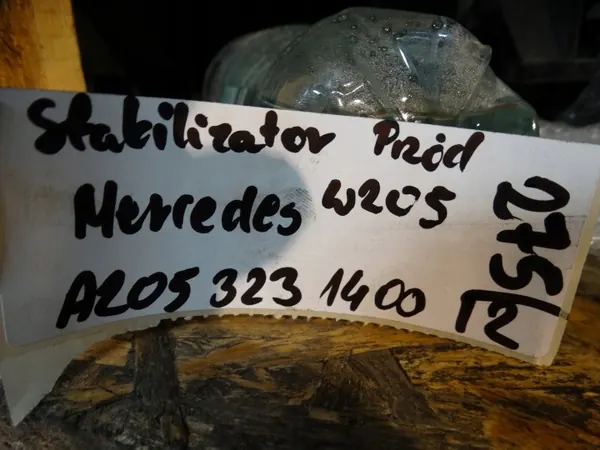 Stabilizator Przód
Mercedes W205
A205 323 1400
275/2